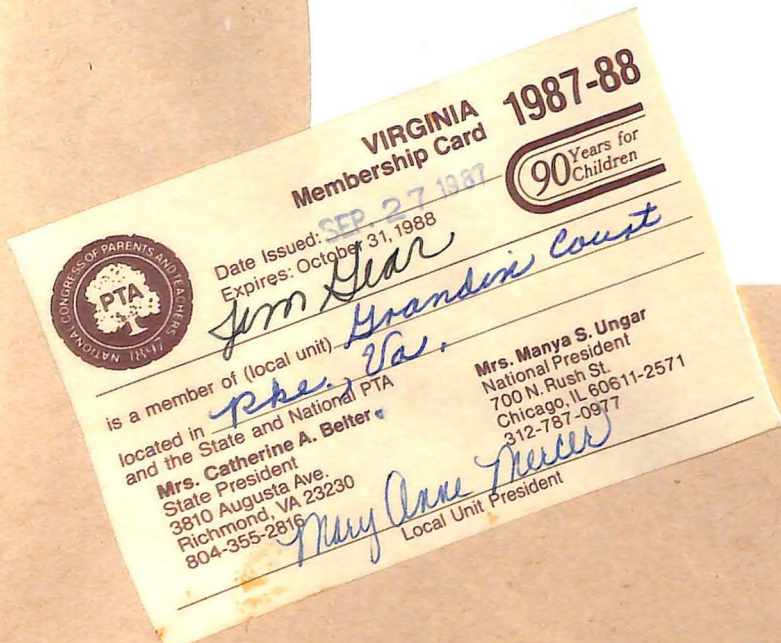 VIRGINIA 1987-88
Membership Card
90 Years for Children
NATIONAL CONGRESS OF PARENTS AND TEACHERS 1897
PTA
Date Issued: SEP. 27 1987
Expires: October 31, 1988
Jim Gear
is a member of (local unit) Grandin Court
located in Rke., Va.
and the State and National PTA
Mrs. Catherine A. Belter
State President
3810 Augusta Ave.
Richmond, VA 23230
804-355-2816
Mrs. Manya S. Ungar
National President
700 N. Rush St.
Chicago, IL 60611-2571
312-787-0977
Mary Anne Mercer
Local Unit President